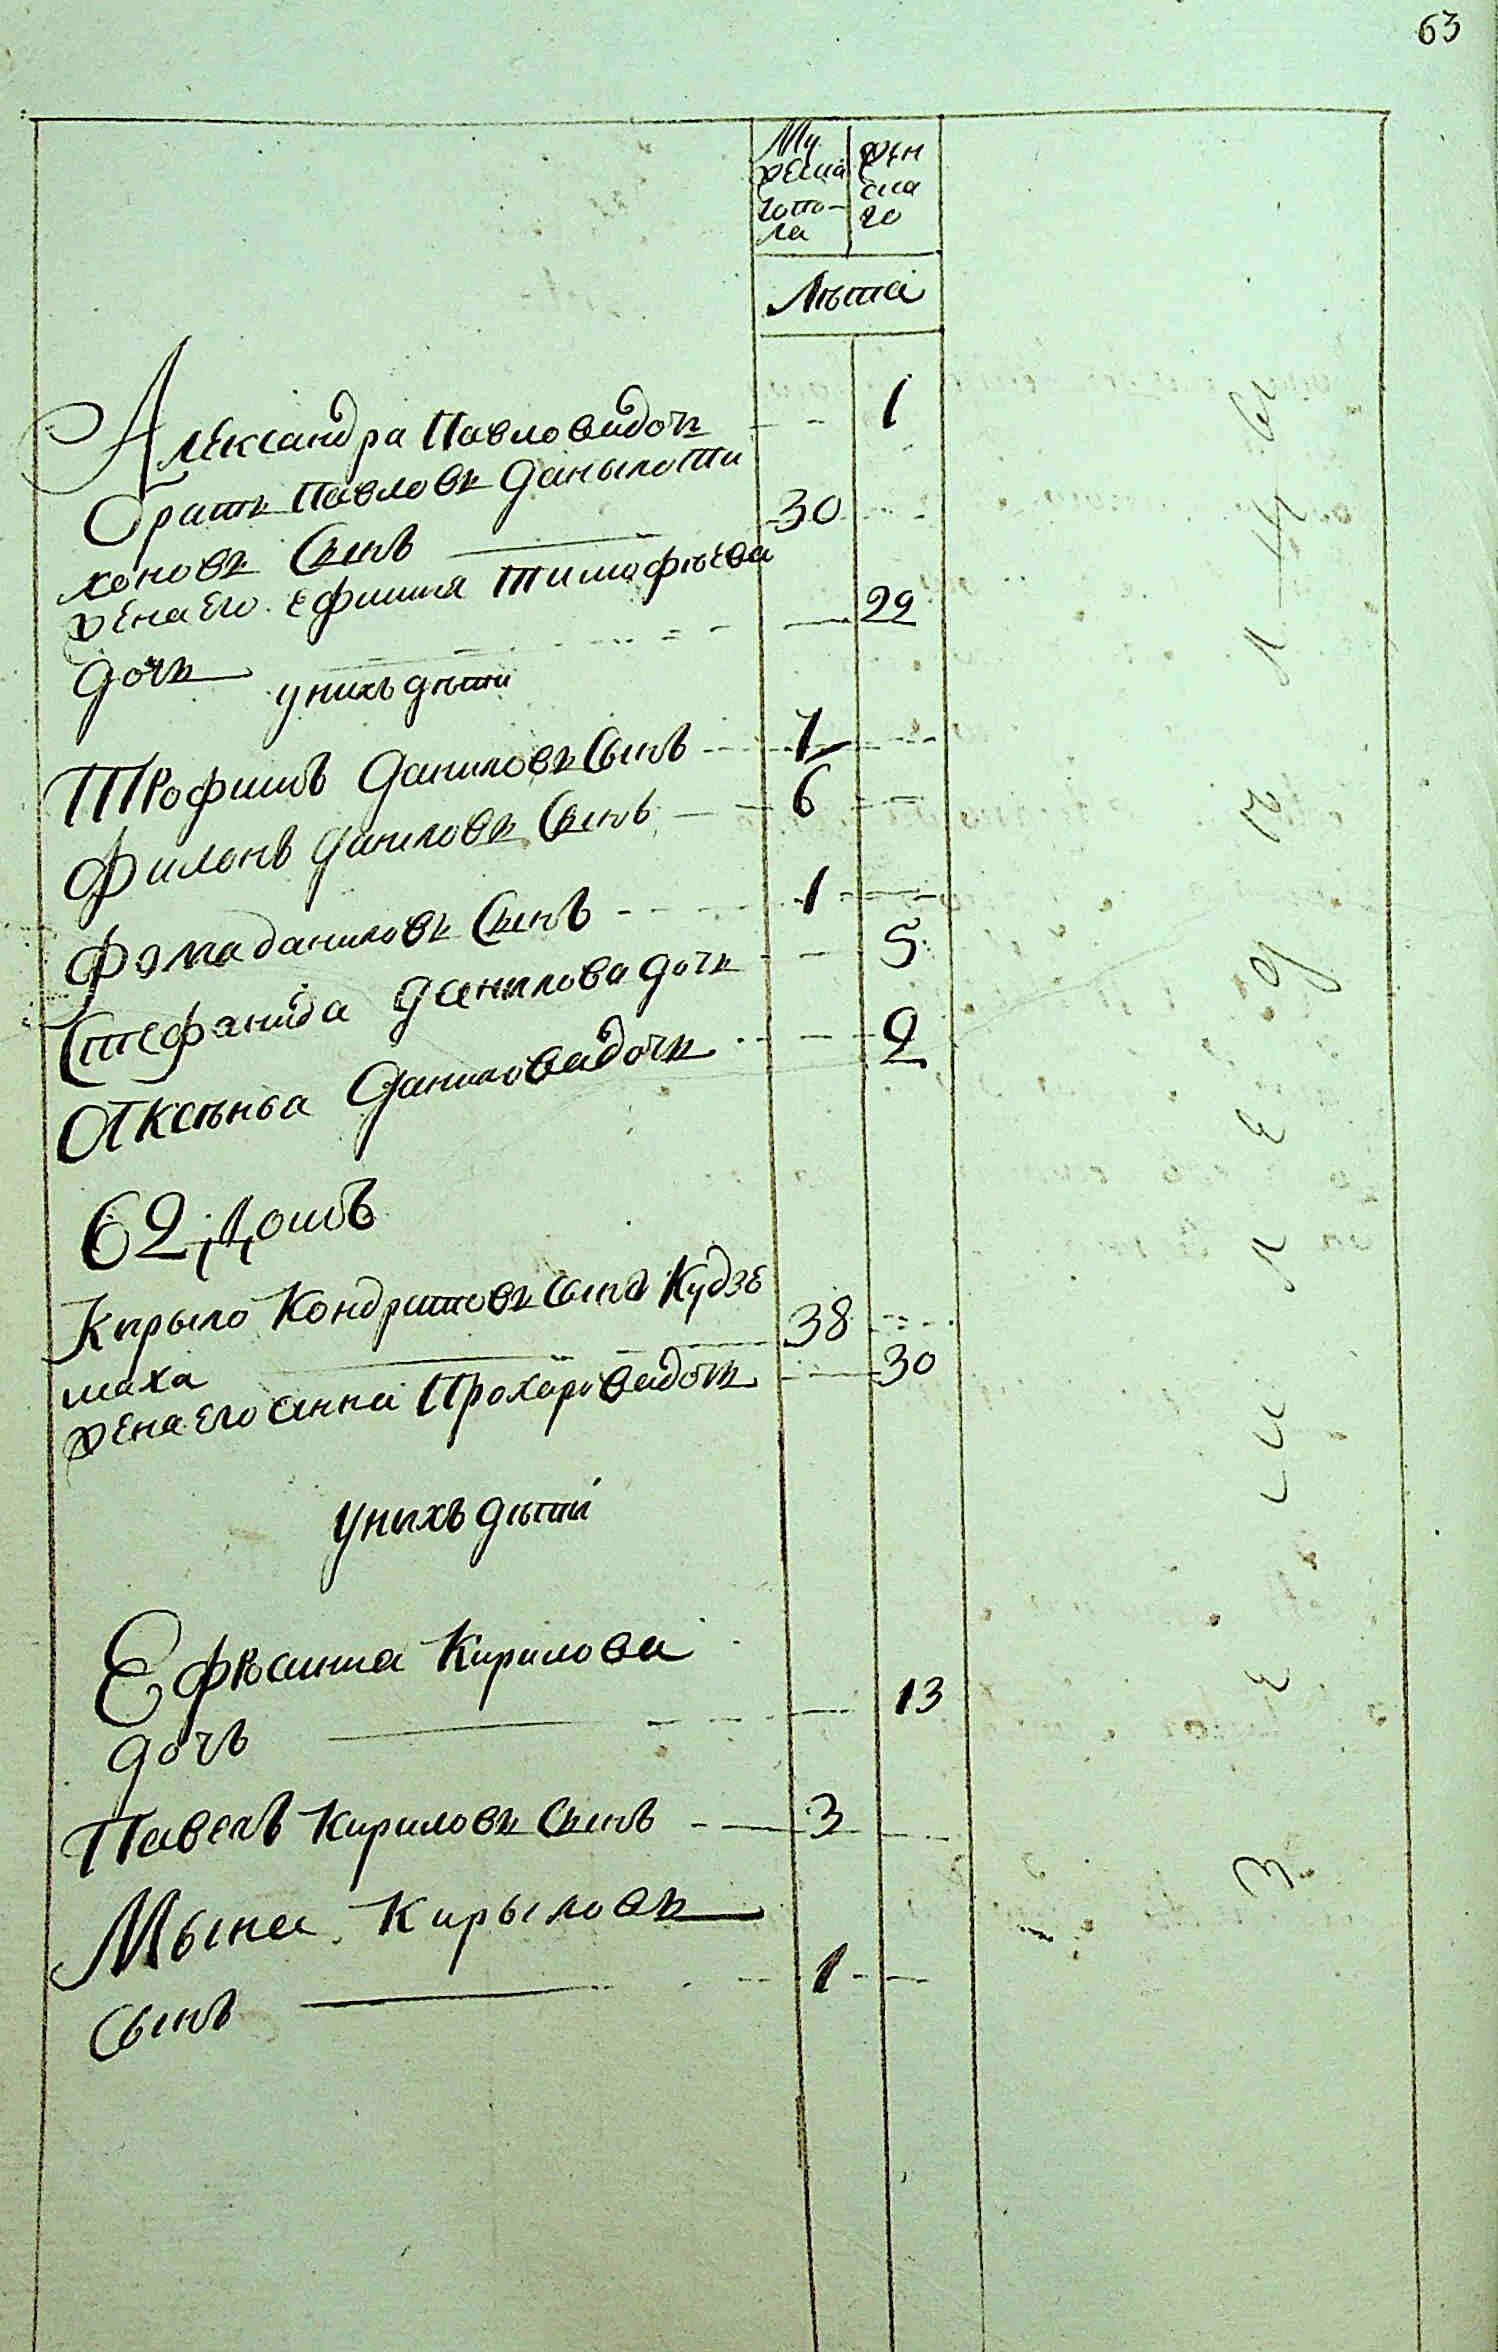 63
Му
жеска
го по-
ла
Жен
ска
го
Лѣта
Александра Павлова дочь 1
Братъ Павловъ Даныло Ти
хоновъ Сынъ 30
жена его Ефимия Тимофѣева
дочь 22
у нихъ дѣти
Трофимъ Даниловъ Сынъ 7
Филонъ Даниловъ Сынъ 6
Фома Даниловъ Сынъ 1
Стефанида Данылова дочь 5
Аксѣнья Данилова дочь 2
62, Домъ
Кирыло Кондратовъ Сынъ Кудзе
маха 38
жена его Анна Прохорова дочь 30
у ныхъ дѣти
Ефросиния Кирилова
дочь 13
Павелъ Кириловъ Сынъ 3
Мына Кирыловъ
Сынъ 1